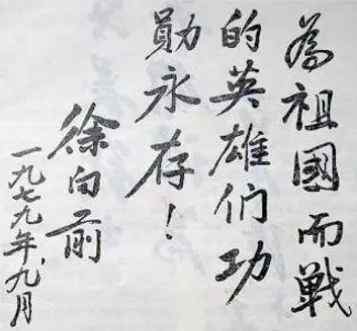 為祖國而戦
的英雄们功
勛永存！
徐向前
一九七九年，九月